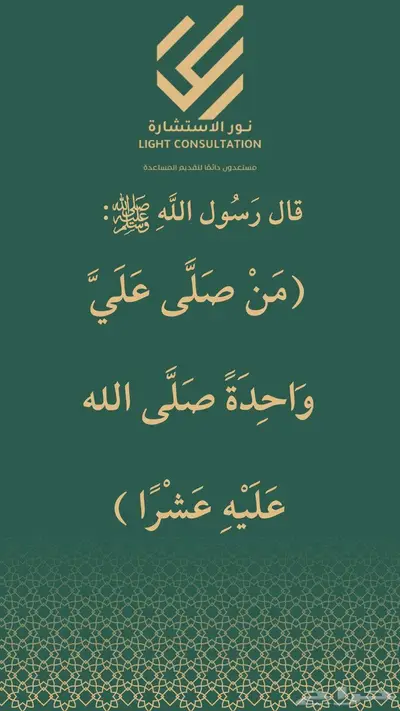 نور الاستشارة
LIGHT CONSULTATION
مستعدون دائمًا لتقديم المساعدة
قال رَسُول اللَّهِ ﷺ:
(مَنْ صَلَّى عَلَيَّ
وَاحِدَةً صَلَّى الله
عَلَيْهِ عَشْرًا )
حراج